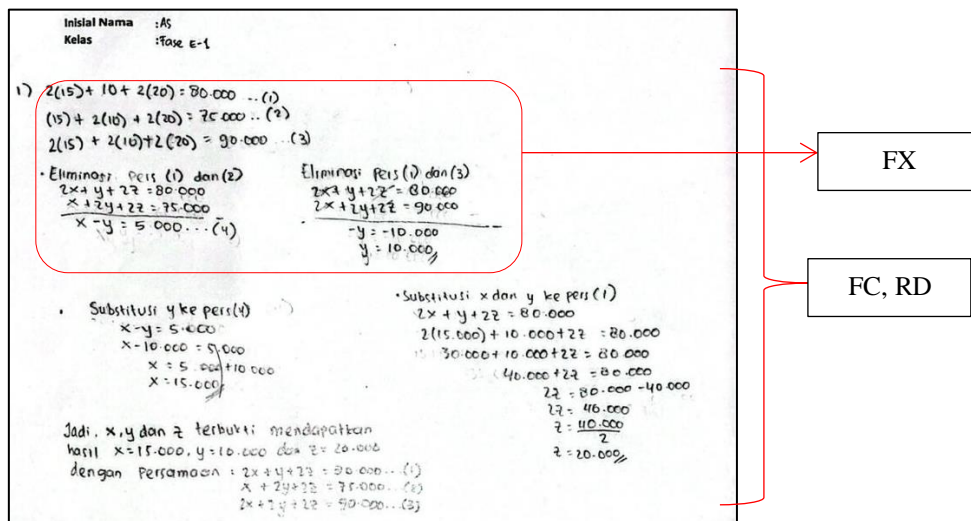 Inisial Nama : AS
Kelas : Fase E-1
1) 2(15) + 10 + 2(20) = 80.000 ...(1)
(15) + 2(10) + 2(20) = 75.000 ..(2)
2(15) + 2(10) + 2(20) = 90.000 ...(3)
• Eliminasi Pers (1) dan (2)
2x + y + 2z = 80.000
x + 2y + 2z = 75.000
x - y = 5.000 ... (4)
Eliminasi Pers (1) dan (3)
2x + y + 2z = 80.000
2x + 2y + 2z = 90.000
-y = -10.000
y = 10.000
FX
FC, RD
• Substitusi y ke pers (4)
x - y = 5.000
x - 10.000 = 5.000
x = 5.000 + 10.000
x = 15.000
• Substitusi x dan y ke pers (1)
2x + y + 2z = 80.000
2(15.000) + 10.000 + 2z = 80.000
30.000 + 10.000 + 2z = 80.000
40.000 + 2z = 80.000
2z = 80.000 - 40.000
2z = 40.000
z = 40.000
2
z = 20.000
Jadi, x, y dan z terbukti mendapatkan
hasil x = 15.000, y = 10.000 dan z = 20.000
dengan Persamaan : 2x + y + 2z = 80.000 ...(1)
x + 2y + 2z = 75.000 ...(2)
2x + 2y + 2z = 90.000 ...(3)